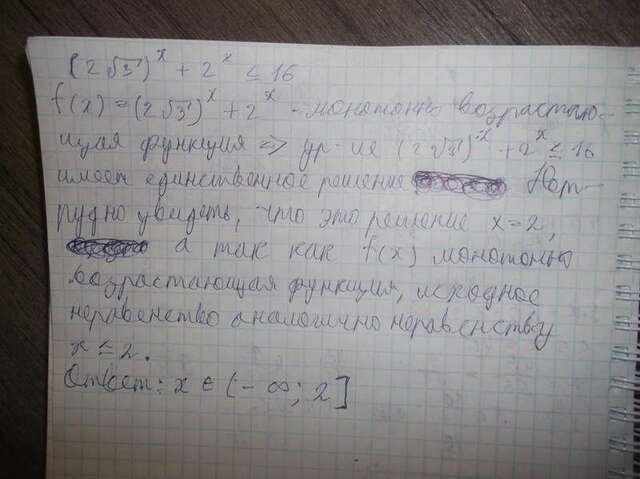 (2√3)^x + 2^x ≤ 16
f(x) = (2√3)^x + 2^x - монотонно возрастаю-
щая функция => ур-ие (2√3)^x + 2^x ≤ 16
имеет единственное решение Нет-
рудно увидеть, что это решение x = 2,
а так как f(x) монотонно
возрастающая функция, исходное
неравенство аналогично неравенству
x ≤ 2.
Ответ: x ∈ (-∞; 2]